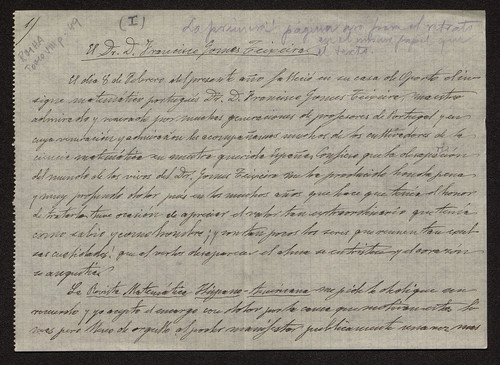 1/ (I) La primera página es para el retrato
en el mismo papel que
el texto.
RMHA
Tomo VIII p. 49
El Dr. D. Francisco Gomes Teixeira
El día 8 de Febrero del presente año falleció en su casa de Oporto el in-
signe matemático portugués Dr. D. Francisco Gomes Teixeira, maestro
admirado y venerado por muchas generaciones de profesores de Portugal y en
cuya veneración y admiración le acompañamos muchos de los cultivadores de la
ciencia matemática en nuestra querida España. Confieso que la desaparición
del mundo de los vivos del Dr. Gomes Teixeira me ha producido honda pena
y muy profundo dolor pues en los muchos años que hace que tenía el honor
de tratarle tuve ocasión de apreciar el valor tan extraordinario que tenía
como sabio y como hombre; y son tan pocos los seres que reunen tan exce-
sas cualidades, que al verlos desaparecer el alma se entristece y el corazón
se angustia.
La Revista Matemática Hispano-Americana me pide le dedique un
recuerdo, y yo acepto el encargo con dolor por la causa que motiva estas lí-
neas pero lleno de orgullo al poder manifestar públicamente una vez más